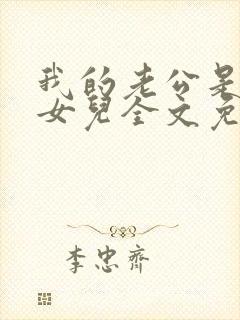 我的老公是
女兒全文免
李忠齊